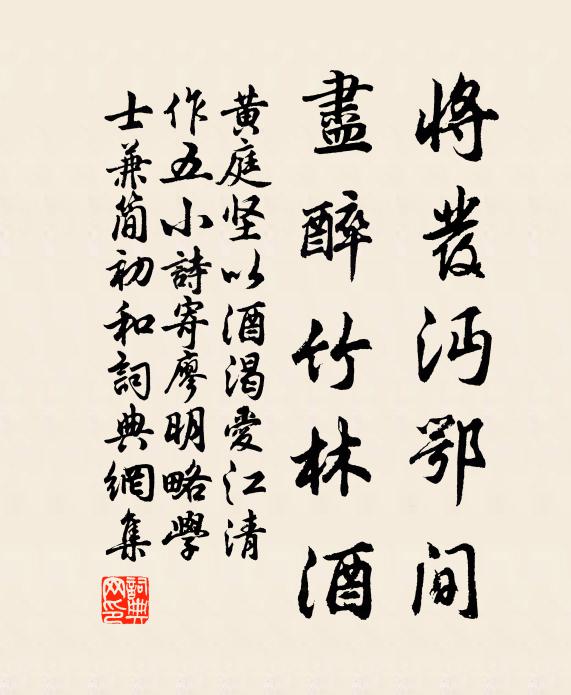 將發沔鄂间
盡醉竹林酒
黄庭坚以酒渴愛江清
作五小詩寄廖明略學
士兼简初和詞典網集
詞典網印